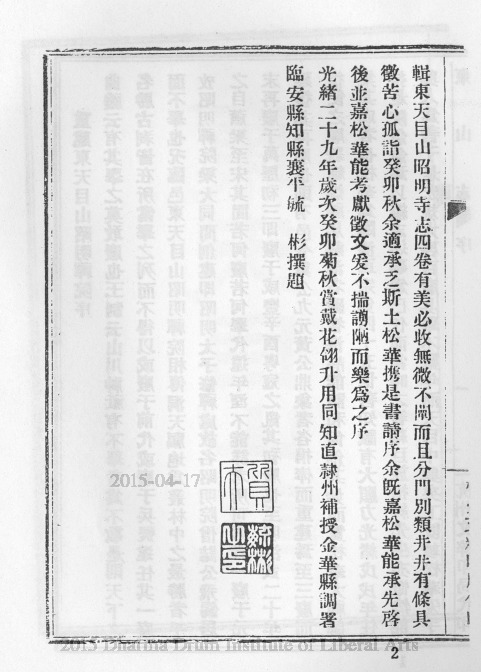 輯東天目山昭明寺志四卷有美必收無微不闡而且分門別類井井有條具
徵苦心孤詣癸卯秋余適承乏斯土松華携是書請序余既嘉松華能承先啓
後並嘉松華能考獻徵文爰不揣譾陋而樂爲之序
光緒二十九年歲次癸卯菊秋賞戴花翎升用同知直隸州補授金華縣調署
臨安縣知縣襄平毓 彬撰題
毓彬之印
2015-04-17
2015 Dharma Drum Institute of Liberal Arts
2